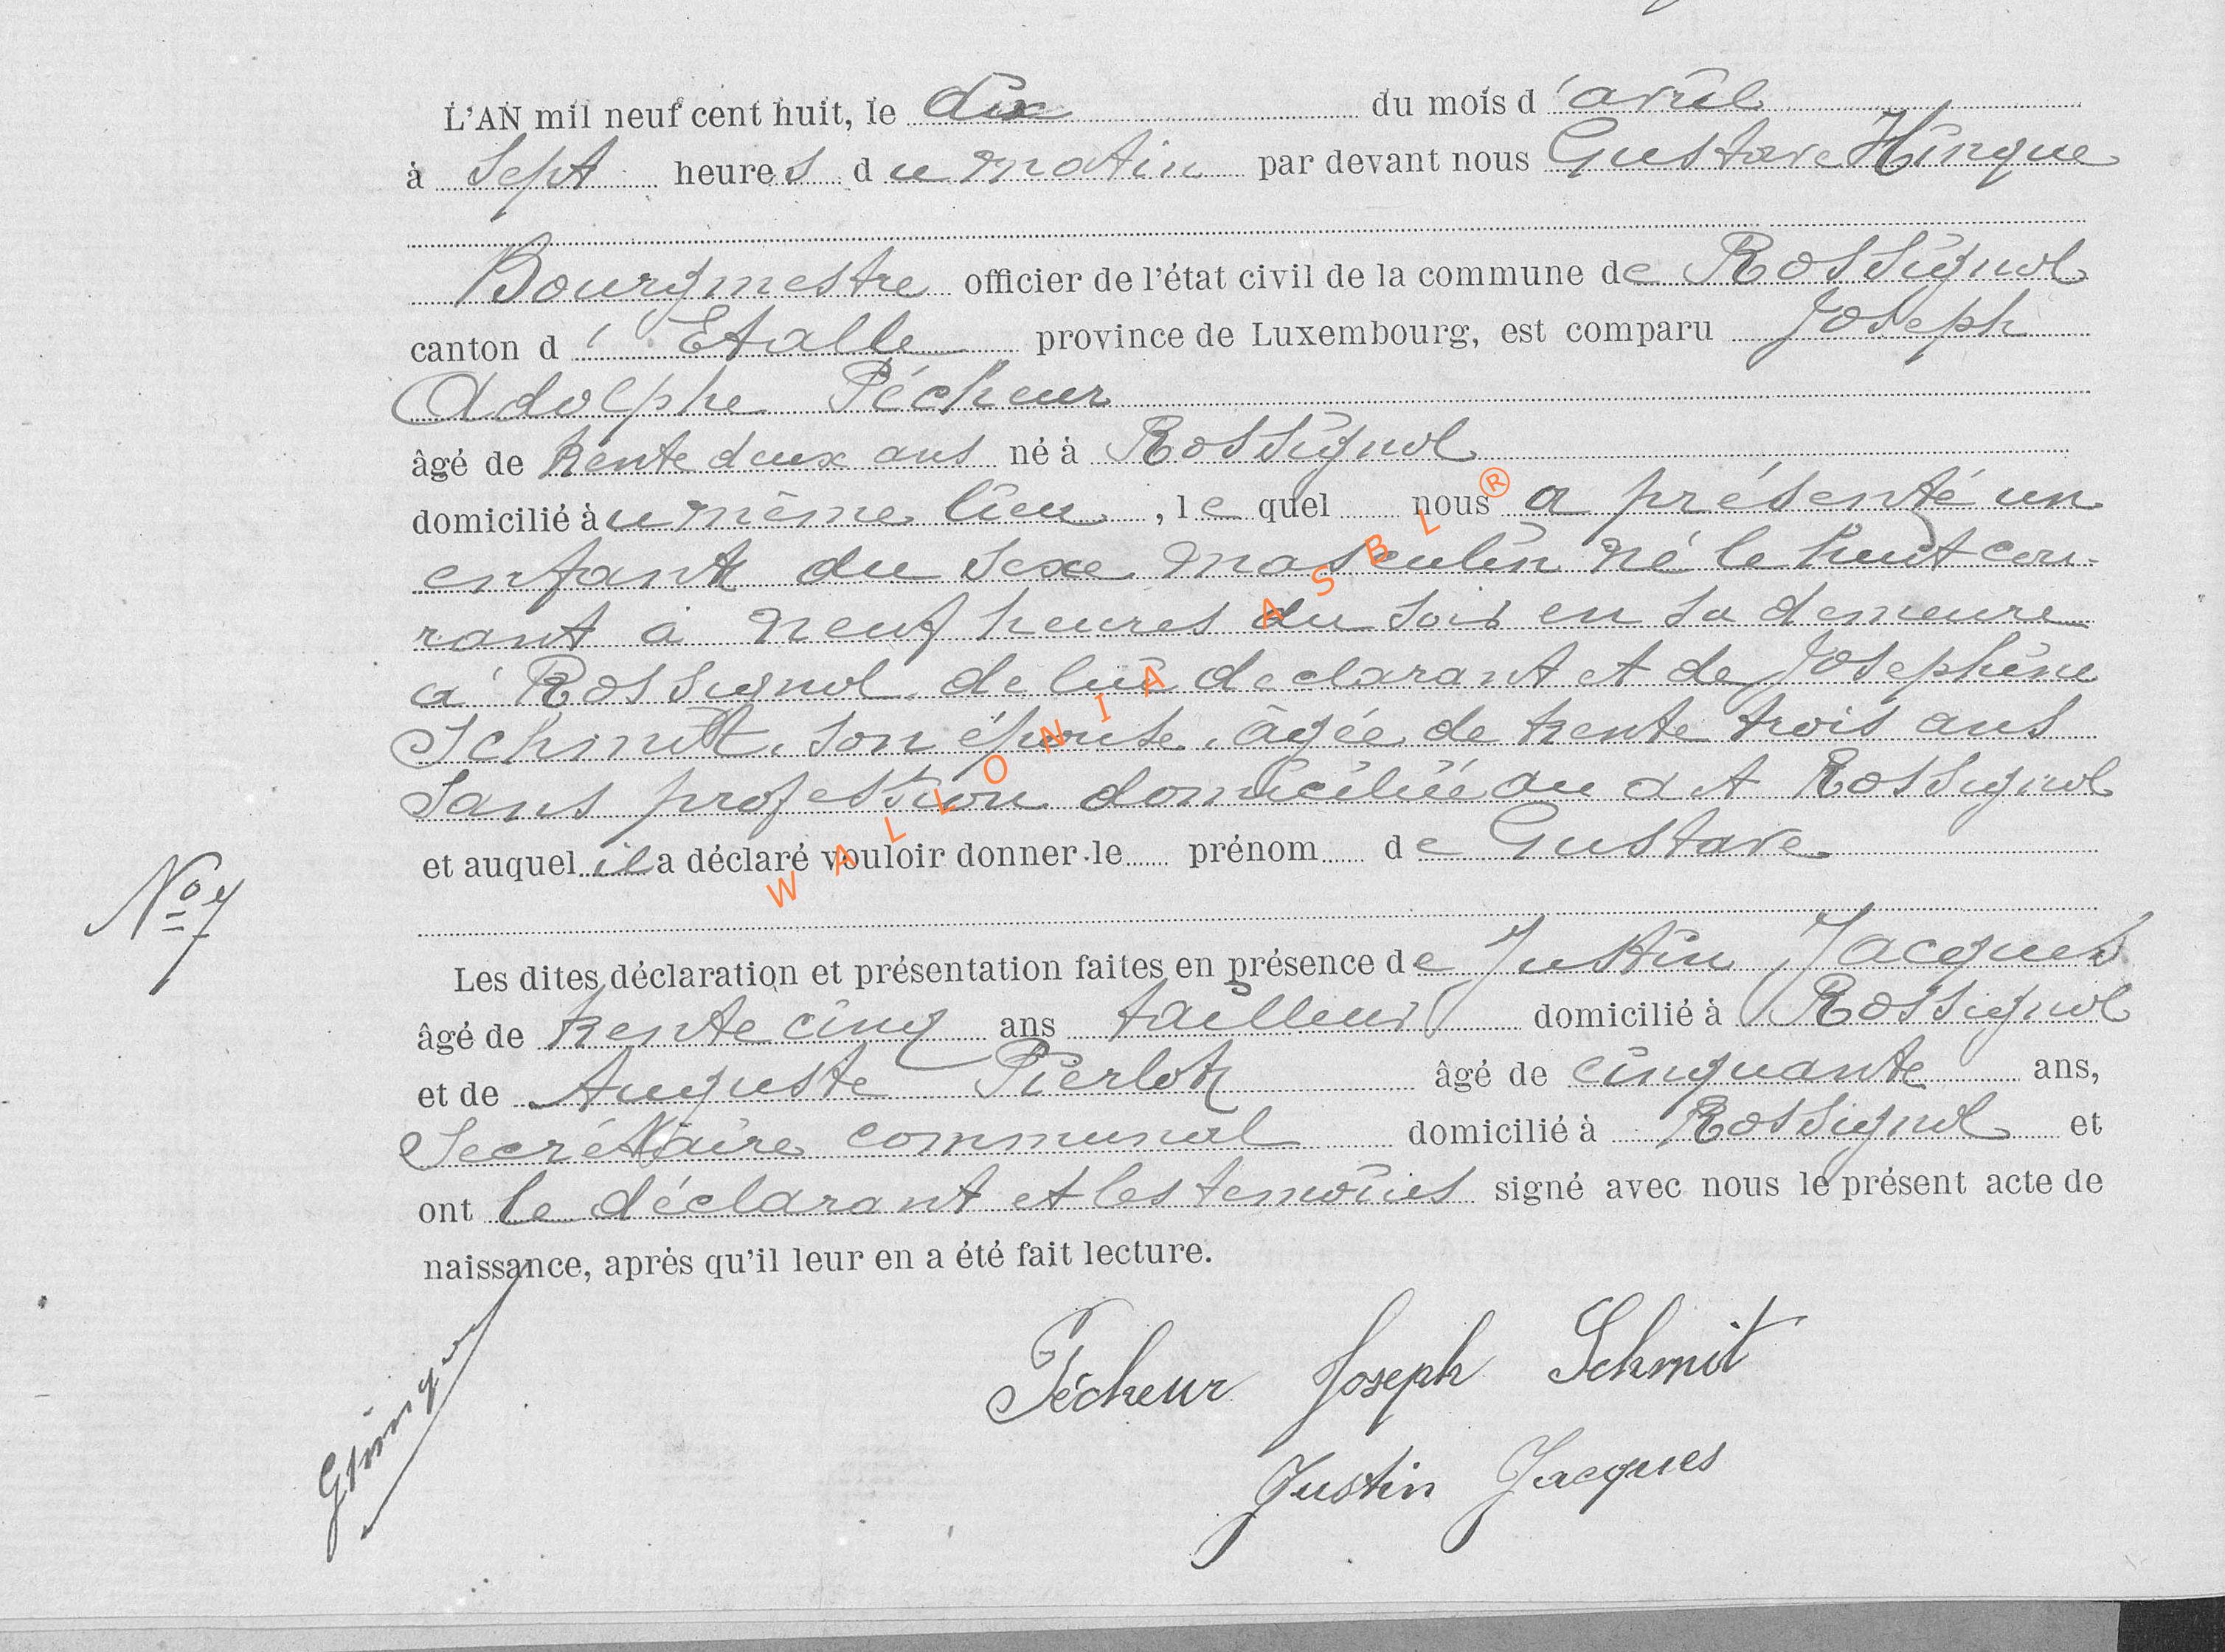 L'AN mil neuf cent huit, le dix du mois d'avril
à sept heures du matin par devant nous Gustave Hinque
Bourgmestre officier de l'état civil de la commune de Rossignol
canton d'Etalle province de Luxembourg, est comparu Joseph
Adolphe Pécheur
âgé de trente deux ans né à Rossignol
domicilié au même lieu, lequel nous a présenté un
enfant du sexe masculin né le huit cou-
rant à neuf heures du soir en sa demeure
à Rossignol de lui declarant et de Joséphine
Schmit, son épouse, âgée de trente trois ans
sans profession domiciliée au dt Rossignol
et auquel il a déclaré vouloir donner le prénom de Gustave
No 7
Les dites déclaration et présentation faites en présence de Justin Jacques
âgé de trente cinq ans tailleur domicilié à Rossignol
et de Auguste Pierlot âgé de cinquante ans,
Secrétaire communal domicilié à Rossignol et
ont le déclarant et les temoins signé avec nous le présent acte de
naissance, après qu'il leur en a été fait lecture.
Pécheur Joseph Schmit
Justin Jacques
WALLONIA ASBL ®